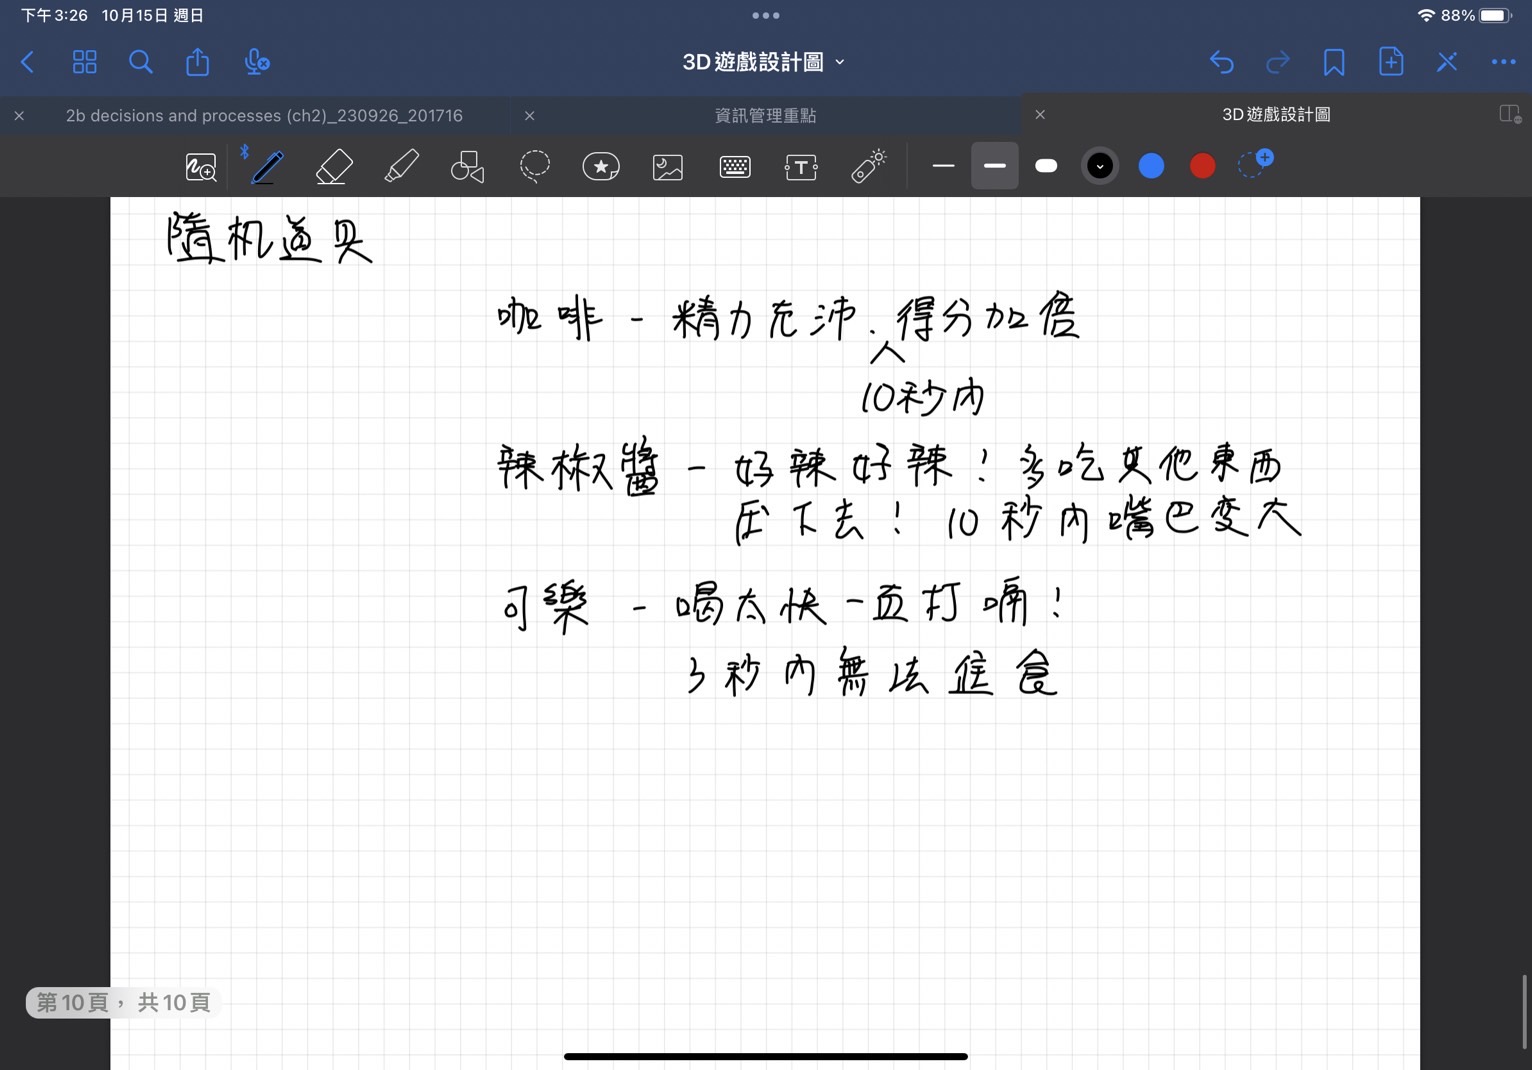 下午3:26 10月15日 週日
88%
3D遊戲設計圖
2b decisions and processes (ch2)_230926_201716
資訊管理重點
3D遊戲設計圖
隨机道具
咖啡 - 精力充沛. 得分加倍
10秒內
辣椒醬 - 好辣好辣！多吃其他東西
压下去！10秒內嘴巴变大
可樂 - 喝太快一直打嗝！
3秒內無法進食
第10頁，共10頁